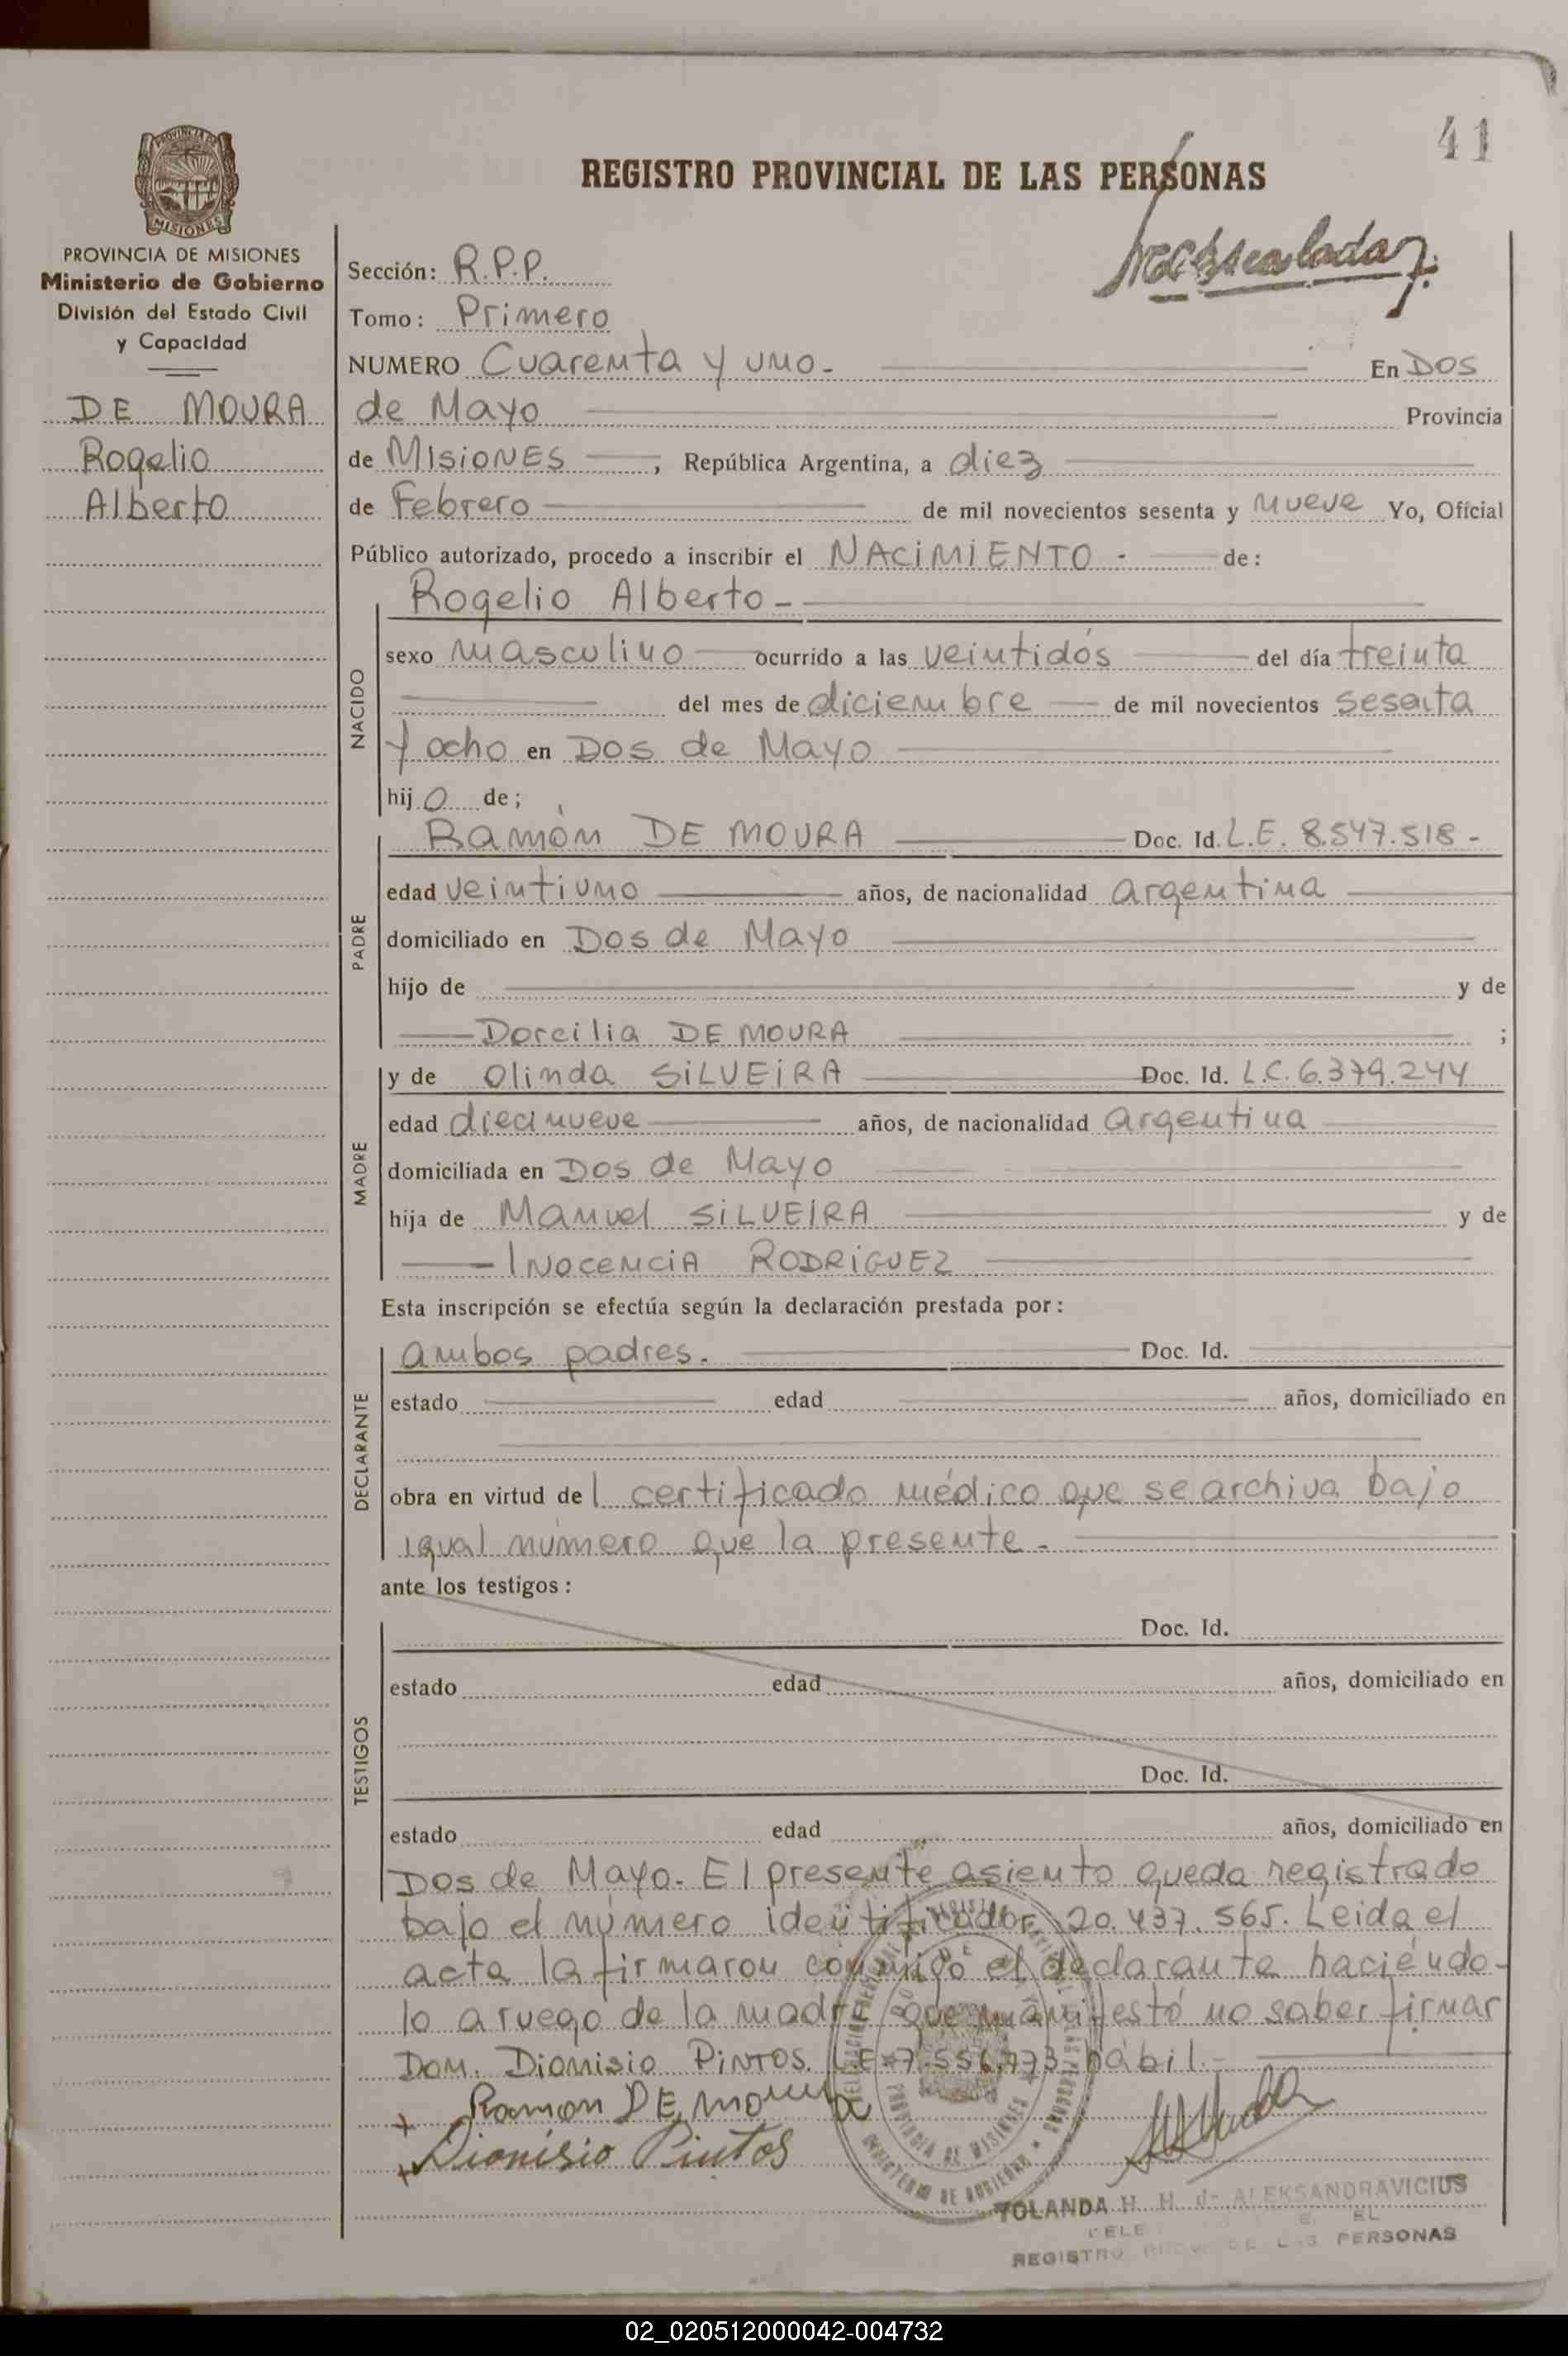 41
PROVINCIA DE
MISIONES
REGISTRO PROVINCIAL DE LAS PERSONAS
PROVINCIA DE MISIONES
Ministerio de Gobierno
División del Estado Civil
y Capacidad
DE MOURA
Rogelio
Alberto
Sección: R.P.P.
Tomo: Primero
NUMERO Cuarenta y uno. En DOS
de Mayo Provincia
de MISIONES, República Argentina, a diez
de Febrero de mil novecientos sesenta y nueve Yo, Oficial
Público autorizado, procedo a inscribir el NACIMIENTO - de:
NACIDO
Rogelio Alberto -
sexo masculino ocurrido a las veintidós del día treinta
del mes de diciembre de mil novecientos sesenta
y ocho en Dos de Mayo
hijo de;
PADRE
Ramón DE MOURA Doc. Id. L.E. 8.547.518 -
edad veintiuno años, de nacionalidad argentina
domiciliado en Dos de Mayo
hijo de y de
Dorcilia DE MOURA ;
MADRE
y de Olinda SILVEIRA Doc. Id. L.C. 6.379.244
edad diecinueve años, de nacionalidad argentina
domiciliada en Dos de Mayo
hija de Manuel SILVEIRA y de
INOCENCIA RODRIGUEZ
Esta inscripción se efectúa según la declaración prestada por:
DECLARANTE
ambos padres. Doc. Id.
estado edad años, domiciliado en
obra en virtud del certificado médico que se archiva bajo
igual número que la presente.
ante los testigos:
TESTIGOS
Doc. Id.
estado edad años, domiciliado en
Doc. Id.
estado edad años, domiciliado en
Dos de Mayo. El presente asiento queda registrado
bajo el número identificador 20.437.565. Leida el
acta la firmaron conmigo el declarante haciéndo-
lo a ruego de la madre que manifestó no saber firmar
Don. Dionisio PINTOS. L.E. 7.556.973 hábil.
Ramon DE moura
Dionisio Pintos
YOLANDA H. H. de ALEKSANDRAVICIUS
REGISTRO PROV. DE LAS PERSONAS
02_020512000042-004732